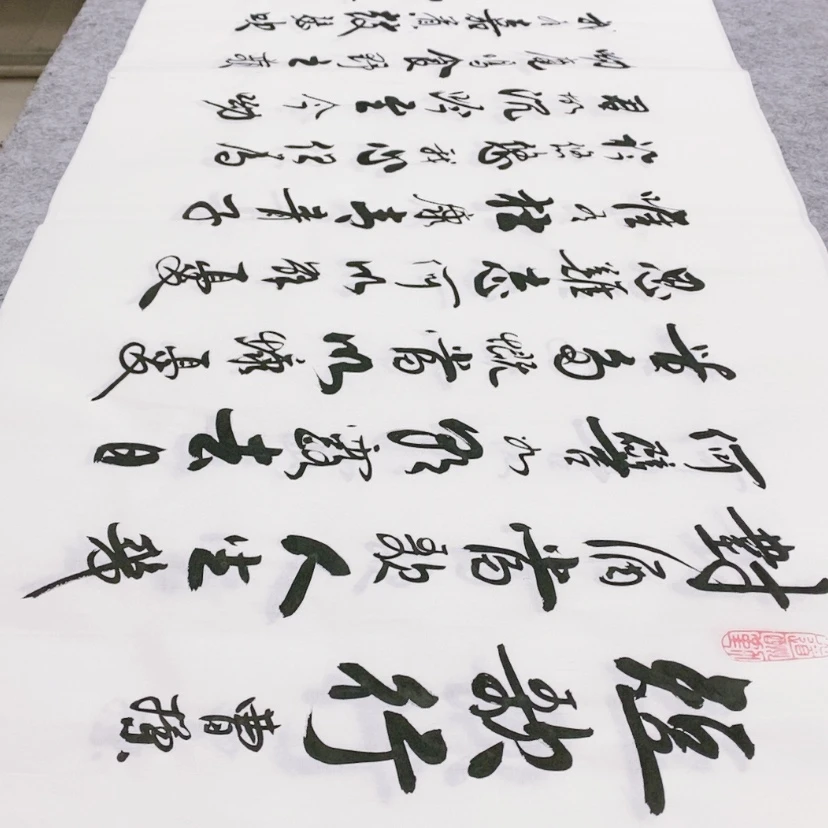 短歌行 曹操
對酒當歌人生幾
何譬如朝露去日
苦多慨當以慷憂
思難忘何以解憂
惟有杜康青青子
衿悠悠我心但為
君故沉吟至今呦
呦鹿鳴食野之苹
我有嘉賓鼓瑟吹